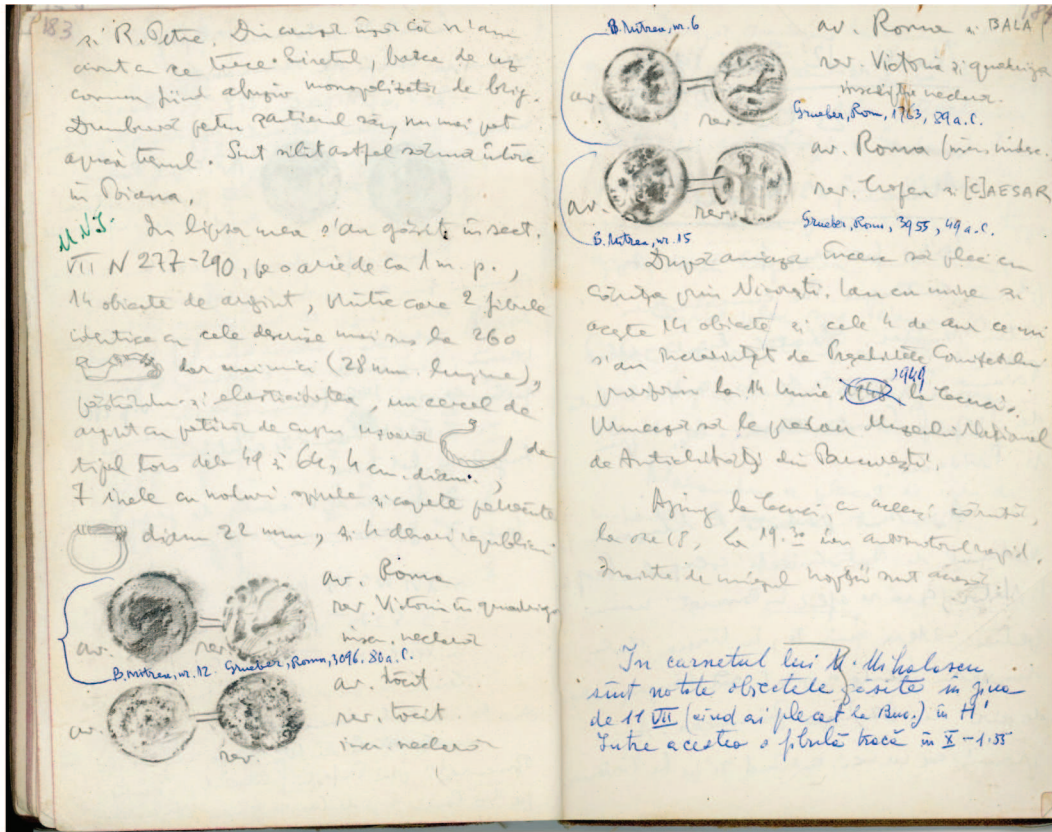 183
și R. Petre. Din cauză însă că n'am
avut cu ce trece Siretul, barca de uz
comun fiind abuziv monopolizată de brig.
Dumbravă pentru șantierul său, nu mai pot
apuca trenul. Sunt silit astfel să mă întorc
în Poiana.
M.N.J.
In lipsa mea s'au găsit în sect.
VII N 277-290, pe o arie de ca 1 m. p.,
14 obiecte de argint, dintre care 2 fibule
identice cu cele descrise mai sus la 260
dar mai mici (28 mm. lungime),
păstrându-și elasticitatea, un cercel de
argint cu de
tipul tors dela 49 și 64, 4 cm. diam.,
7 inele cu noduri spirale și capete petrecute
diam 22 mm, și 4 denari republicani
av. Roma
rev. Victoria în quadriga
inscr. neclară
av. rev.
B. Mitrea, nr. 12. Grueber, Roma, 3096. 80 a. C.
av. tocit
rev. tocit
inscr. neclară
av. rev.
B. Mitrea, nr. 6
av. Roma și BALA
rev. Victoria și quadriga
inscripție neclară.
av. rev.
Grueber, Rom, 1763, 89 a. C.
av. Roma (inscr. indesc.
rev. Trofeu și [C]AESAR
av. rev.
Grueber, Rom, 3955, 49 a. C.
B. Mitrea, nr. 15
După amiaza să plec cu
căruța prin Nicorești. Iau cu mine și
aceste 14 obiecte și cele 4 de aur ce mi
s'au încredințat de Președintele Comitetului
provizoriu la 14 Iunie 1949 la Tecuci.
Urmează să le predau Muzeului Național
de Antichități din București.
Ajung la Tecuci, cu aceeași căruță,
la ore 18. La 19.30 iau automotorul rapid.
Inainte de miezul nopții sunt acasă
In carnetul lui N. Mihalascu
sînt notate obiectele găsite în ziua
de 11 VII (cînd ai plecat la Buc.) în H'
Intre acestea o fibulă tracă în X -1.55